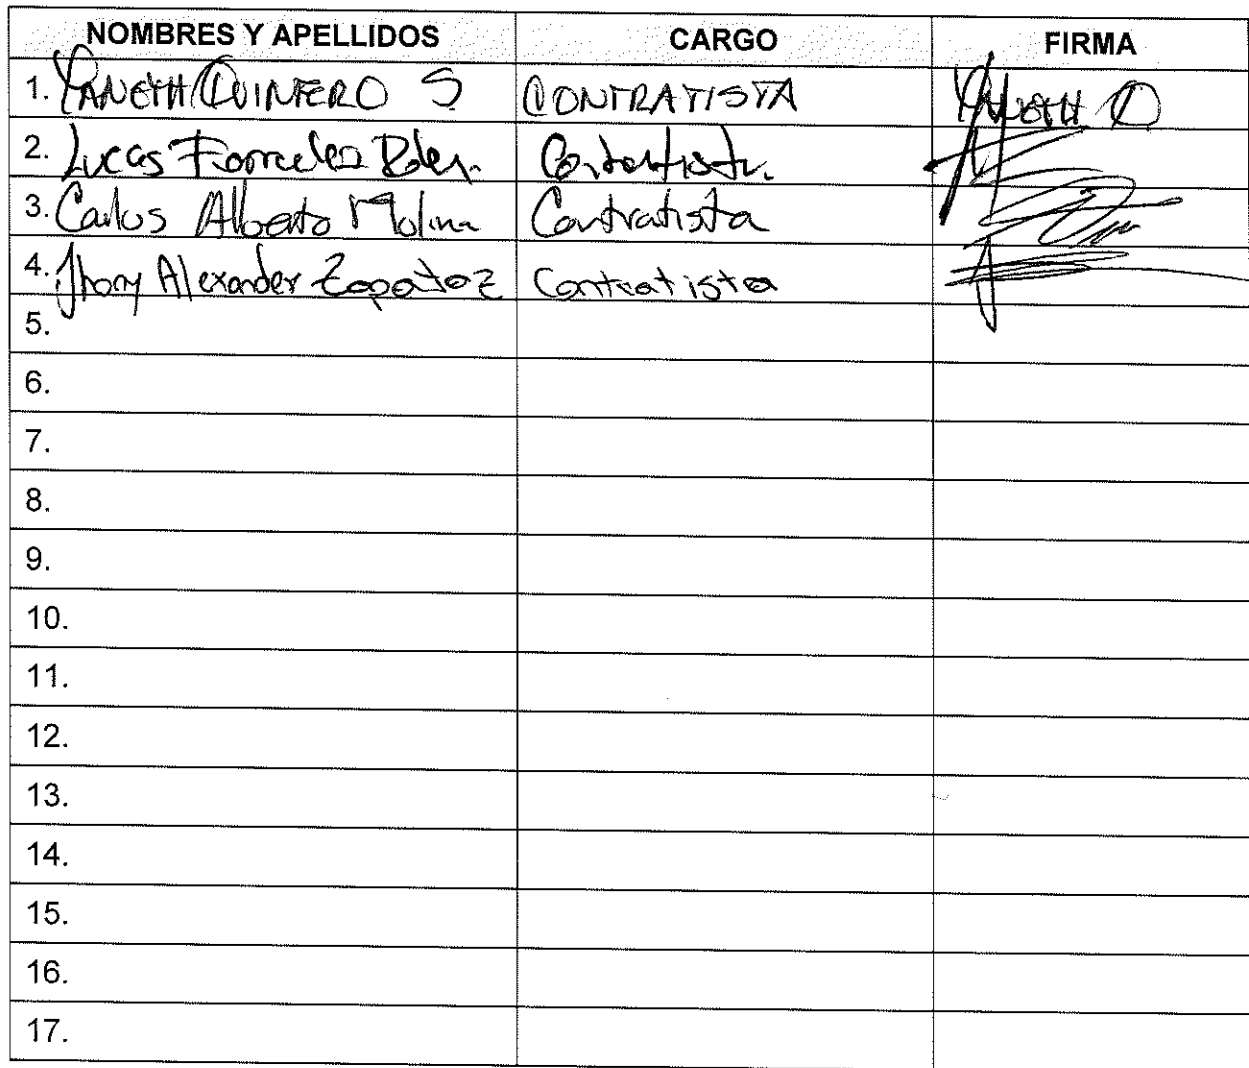 NOMBRES Y APELLIDOS CARGO FIRMA
1. YANETH QUINTERO S CONTRATISTA YANETH Q
2. Lucas Contratista.
3. Carlos Alberto Molina Contratista
4. Jhony Alexander Zapata Z Contratista
5.
6.
7.
8.
9.
10.
11.
12.
13.
14.
15.
16.
17.